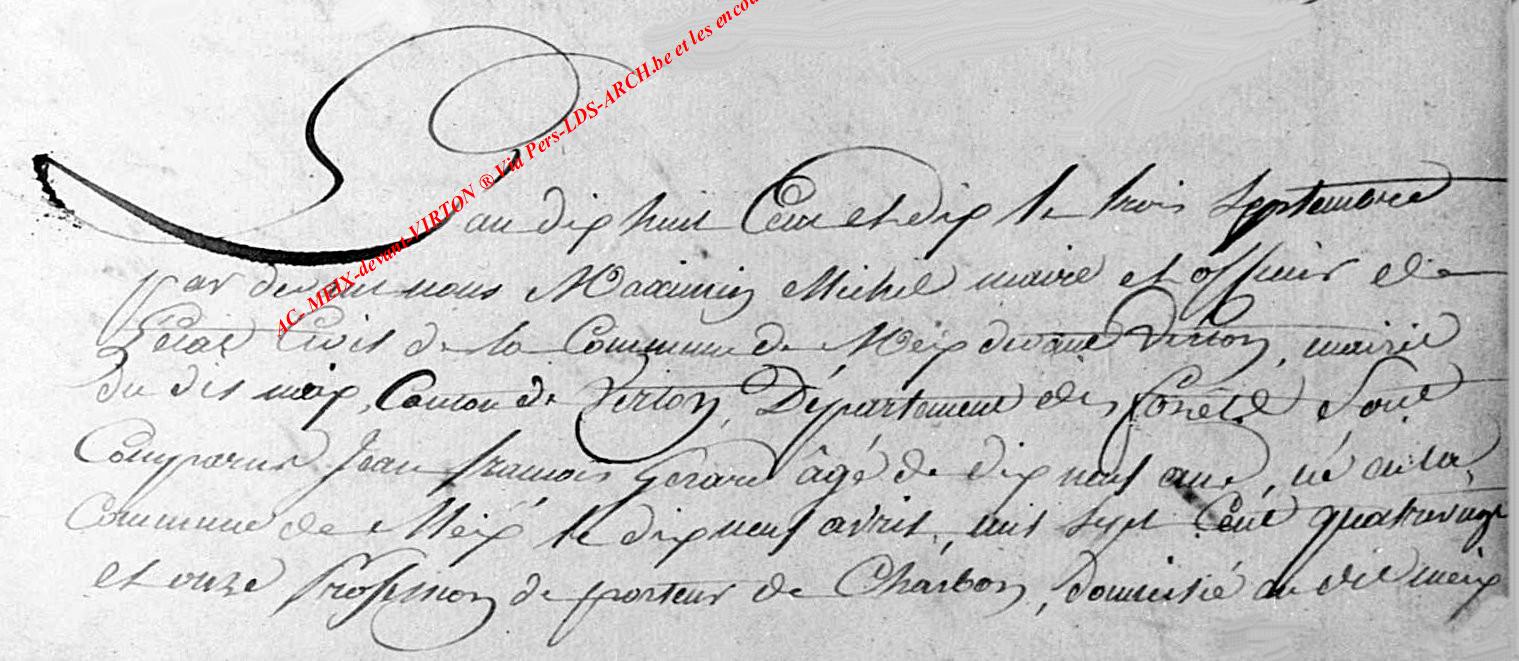 AC- MEIX-devant-VIRTON ® Via Pers-LDS-ARCH.be et les encou
L'an dix huit Cent et dix le trois Septembre
par devant nous Maximin Michel maire et officier de
L'état Civil de la Commune de Meix devant Virton, mairie
du dit meix, Canton de Virton, Département des forêts Sont
Comparus Jean françois Gérard âgé de dix neuf ans, né en la
Commune de Meix le dix neuf avril, mil Sept Cent quatrevingt
et onze Profession de porteur de Charbon, domicilié au dit meix